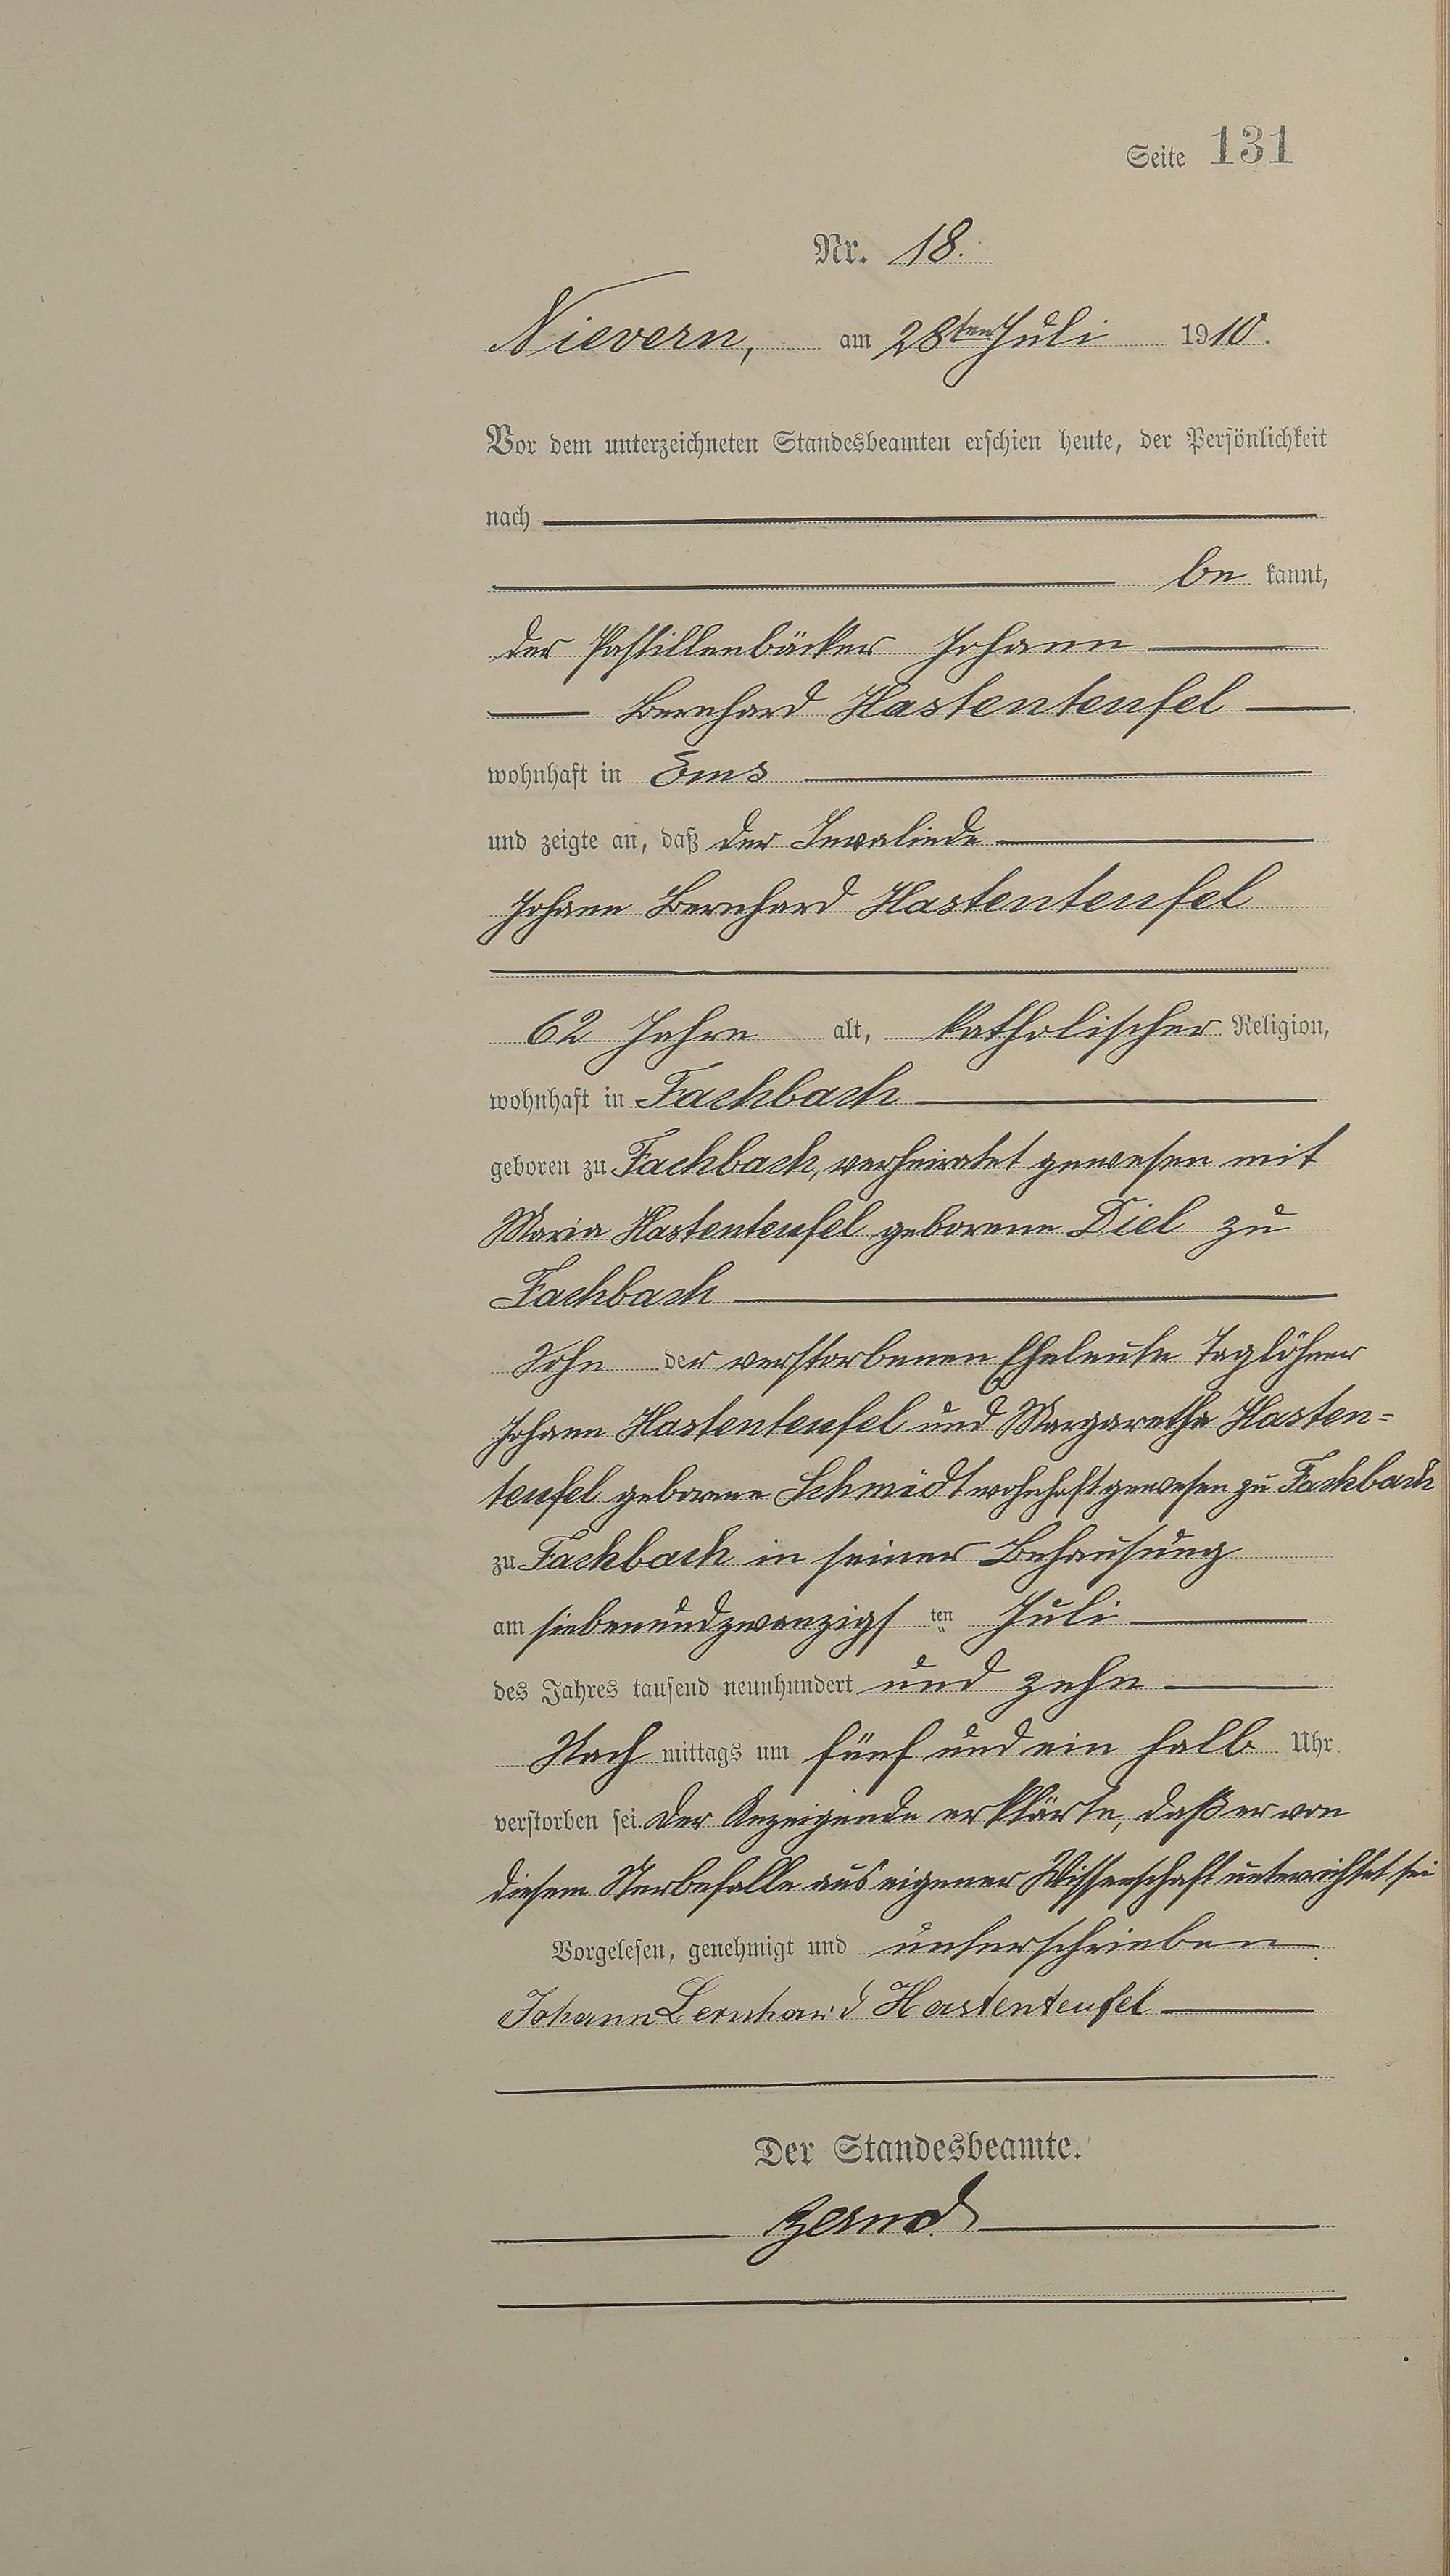 Seite 131
Nr. 18.
Nievern, am 28ten Juli 1910.
Vor dem unterzeichneten Standesbeamten erschien heute, der Persönlichkeit
nach
be kannt,
der Pastillenbäcker Johann
Bernhard Hastenteufel
wohnhaft in Ems
und zeigte an, daß der Invaliede
Johann Bernhard Hastenteufel
62 Jahre alt, katholischer Religion,
wohnhaft in Fachbach
geboren zu Fachbach, verheiratet gewesen mit
Maria Hastenteufel geborene Diel zu
Fachbach
Sohn der verstorbenen Eheleute Taglöhner
Johann Hastenteufel und Margarethe Hasten=
teufel geborene Schmidt wohnhaft gewesen zu Fachbach
zu Fachbach in seiner Behausung
am siebenundzwanzigs ten Juli
des Jahres tausend neunhundert und zehn
Nach mittags um fünf und ein halb Uhr
verstorben sei. Der Anzeigende erklärte, daß er von
diesem Sterbefalle aus eigener Wissenschaft unterrichtet sei
Vorgelesen, genehmigt und unterschrieben
Johann Bernhard Hastenteufel
Der Standesbeamte.